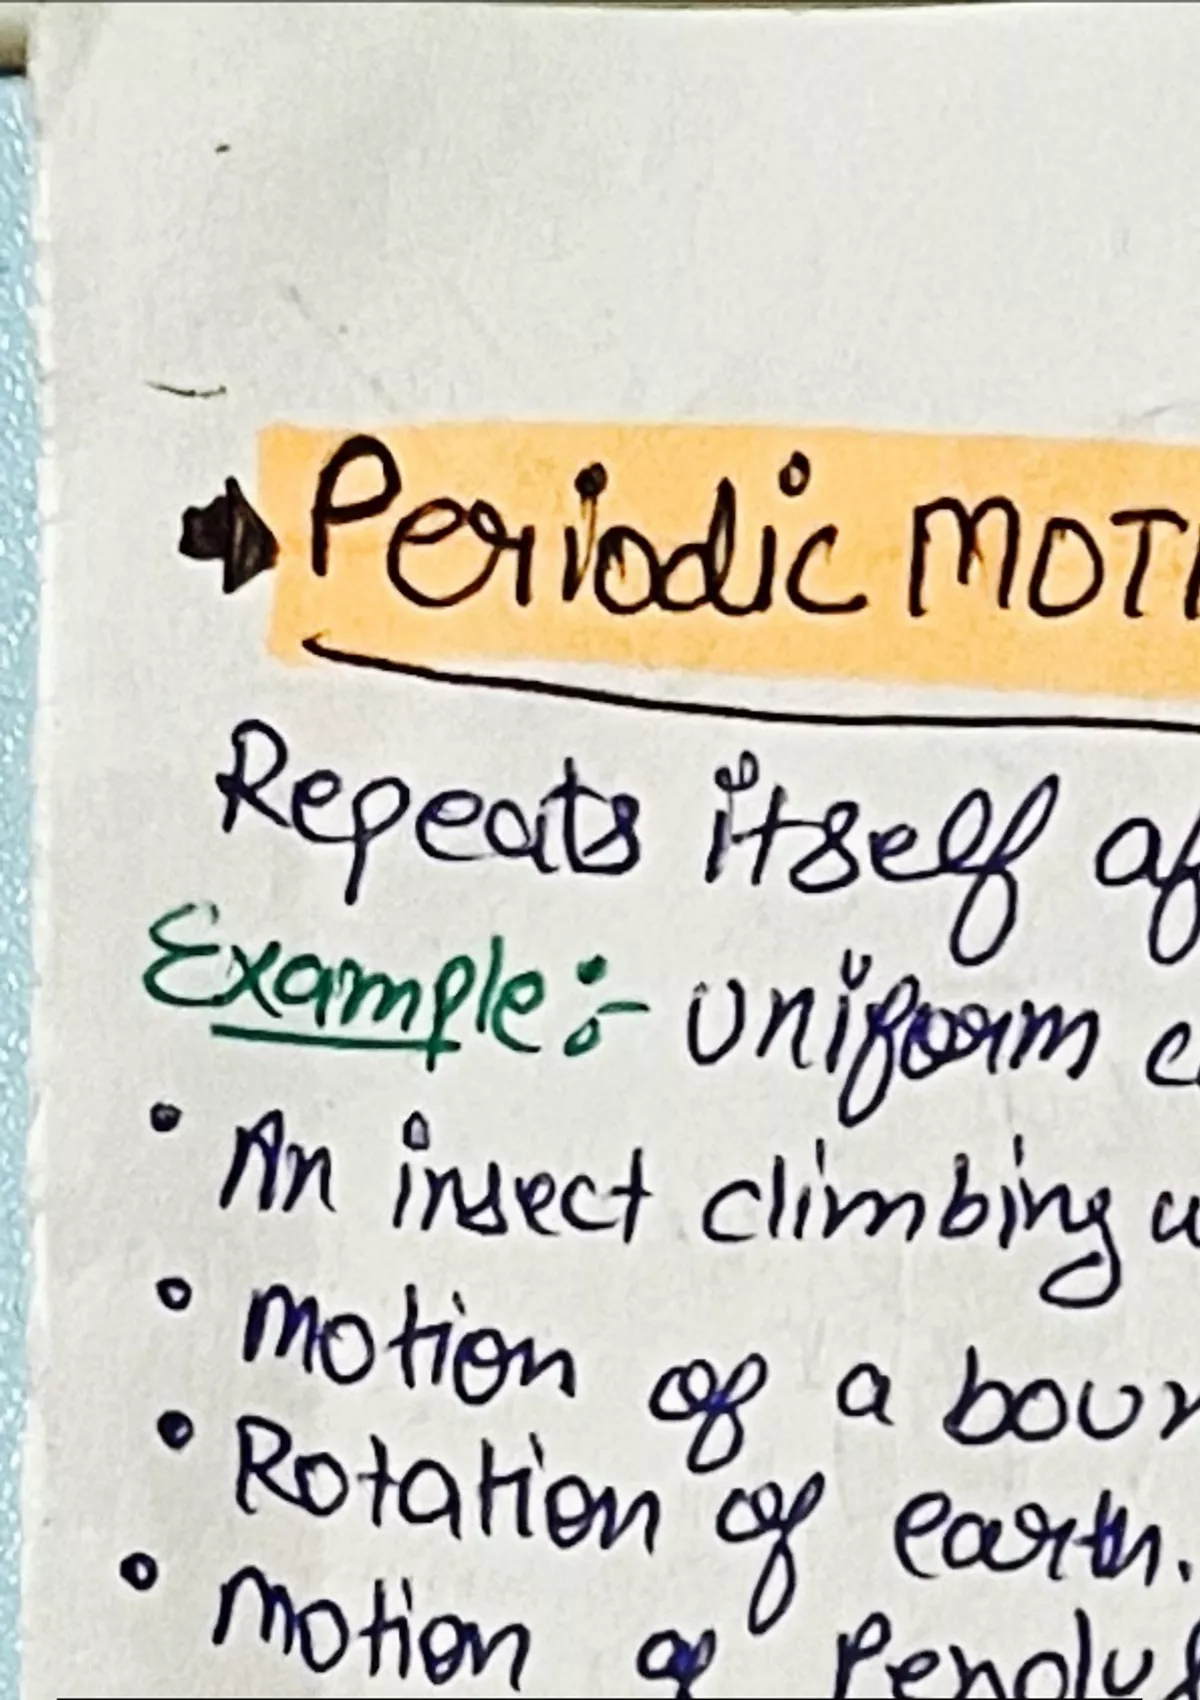 Periodic MOTI
Repeats itself af
Example:- Uniform c
• An insect climbing u
• Motion of a boun
• Rotation of earth.
• Motion of Pendul